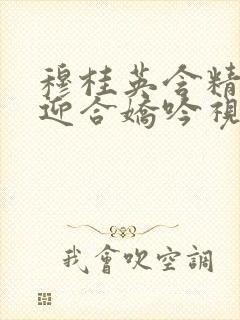 穆桂英含精
迎合嬌吟視
我會吹空調